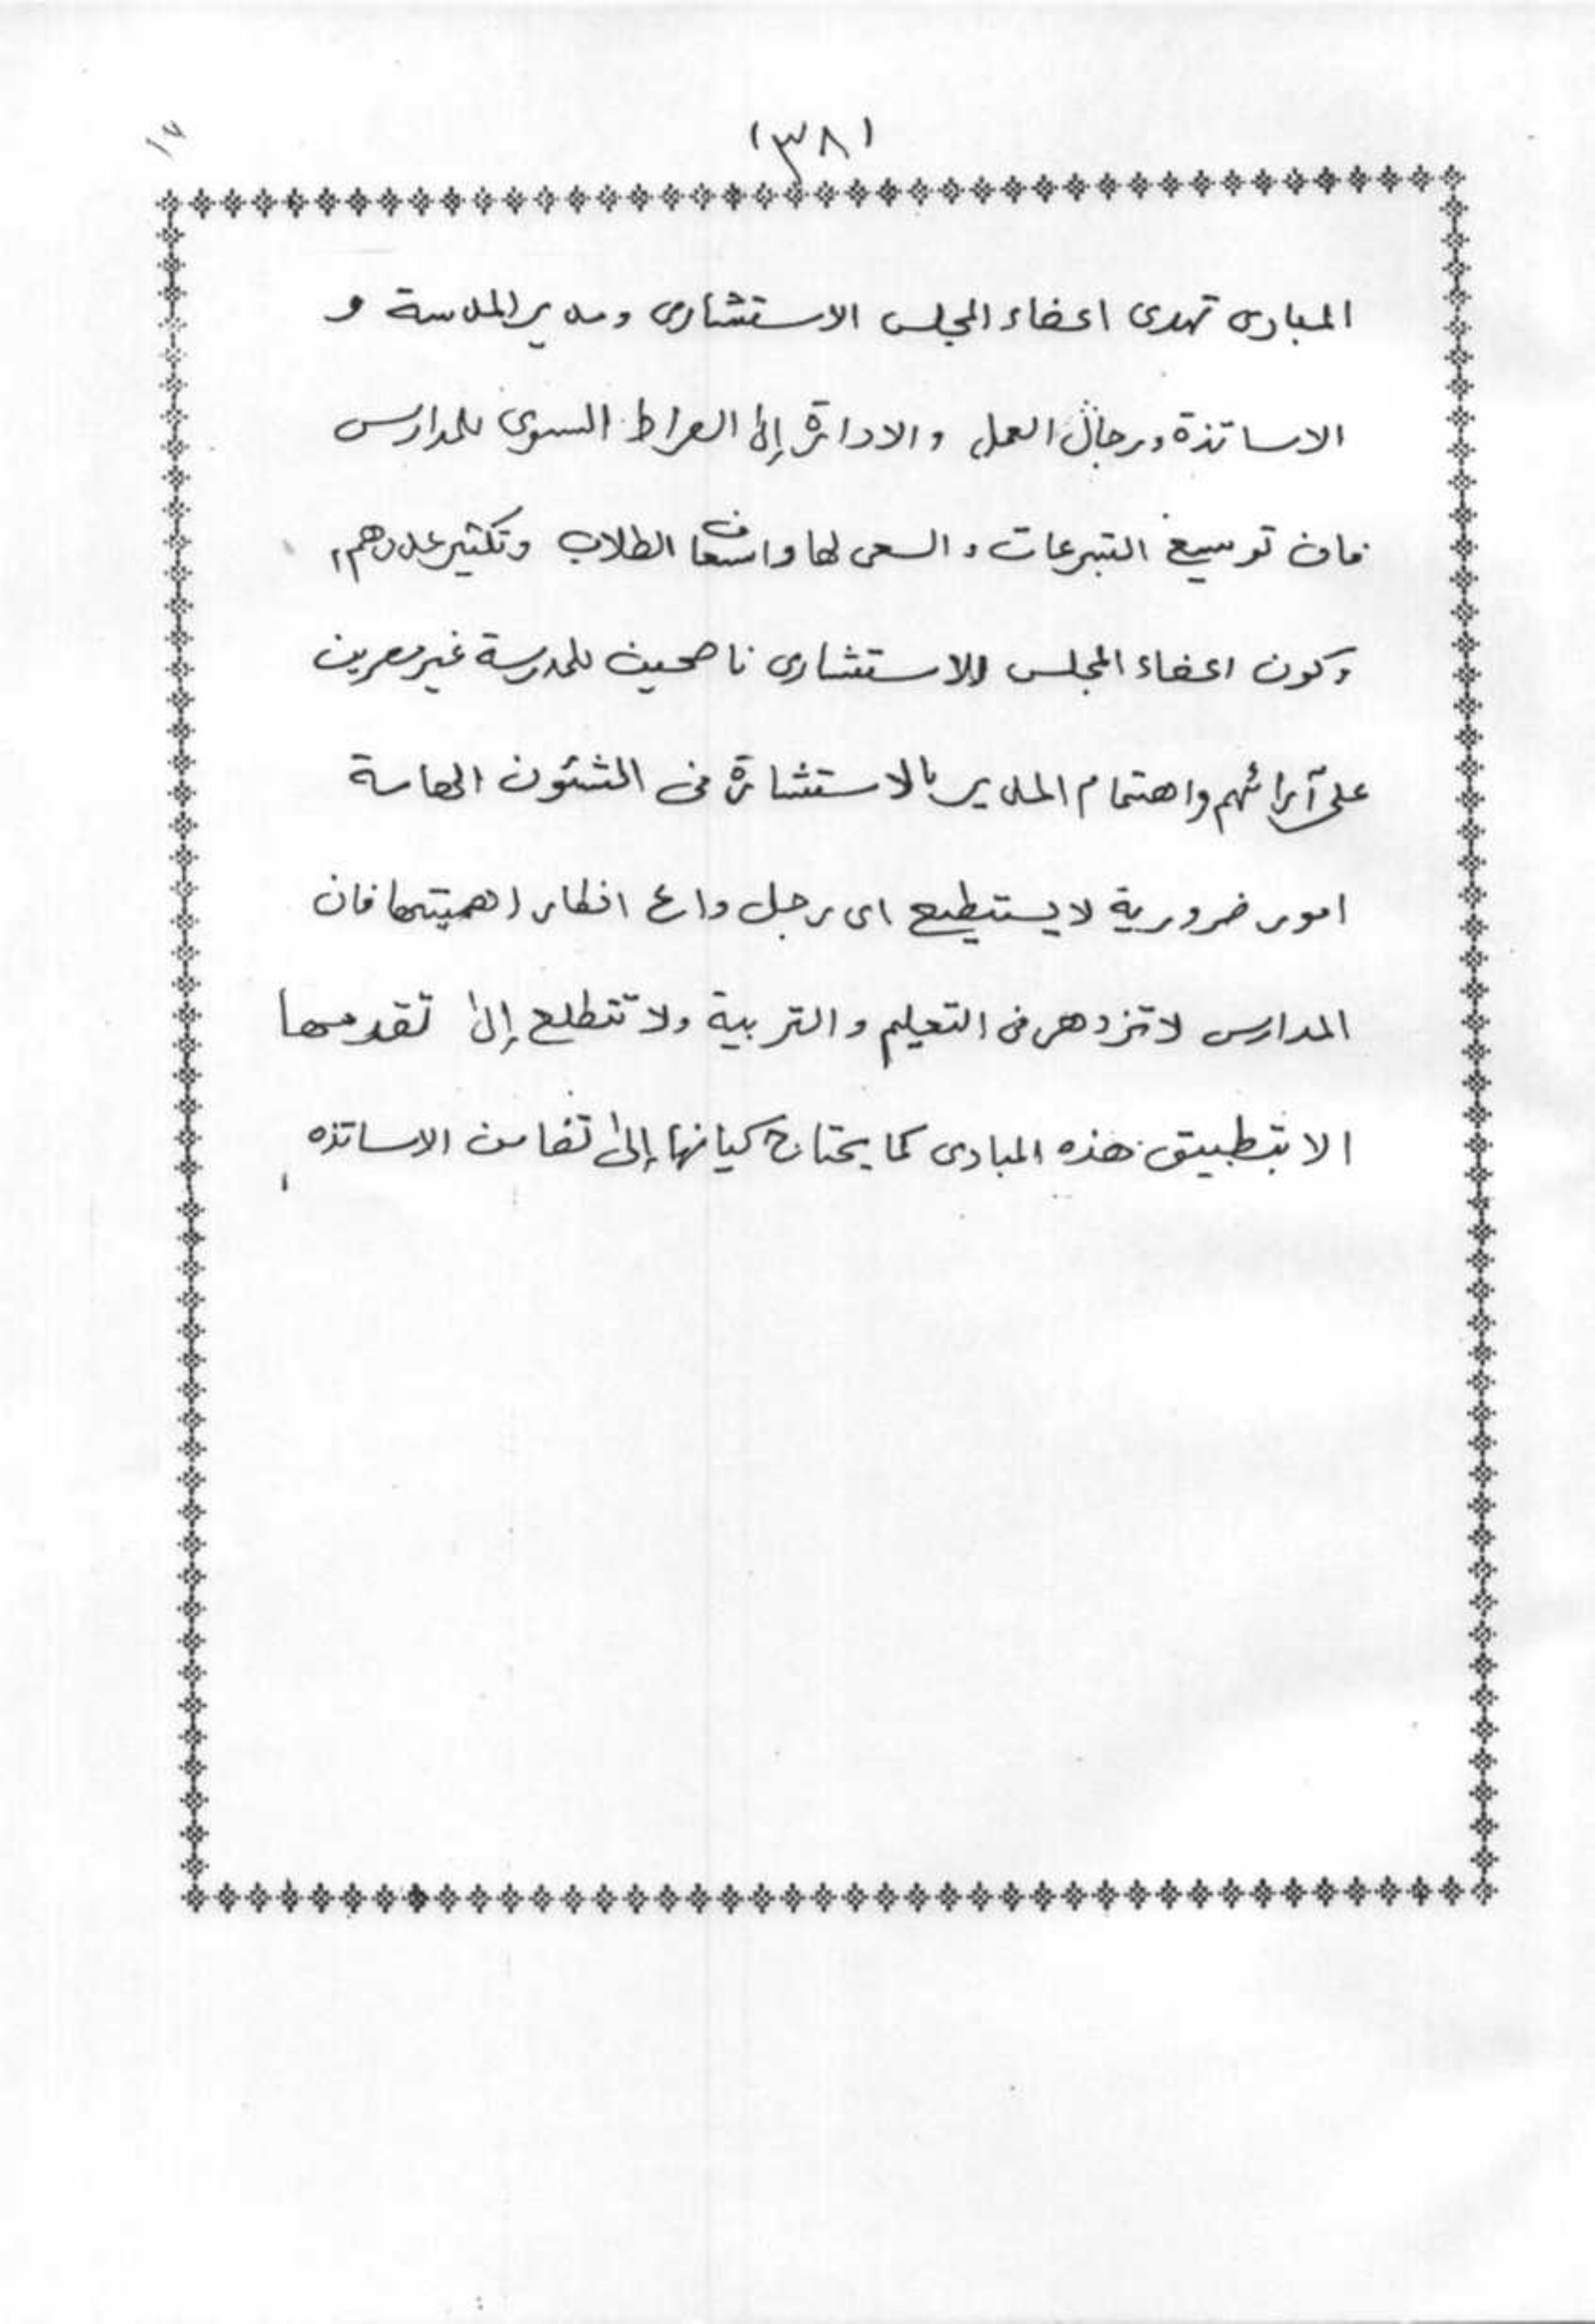 (٣٨)
١٧
المبادى تهدى اعضاء المجلس الاستشارى ومدير المدرسة و
الاساتذة ورجال العمل والادارة إلى الصراط السوى للمدارس
فان توسيع التبرعات والسعى لها واسعاف الطلاب وتكثير عددهم،
وكون اعضاء المجلس الاستشارى ناصحين للمدرسة غير مصرين
على آرائهم واهتمام المدير بالاستشارة فى الشئون الهامة
امور ضرورية لا يستطيع اى رجل واع انكار اهميتها فان
المدارس لا تزدهر فى التعليم والتربية ولا تتطلع إلى تقدمها
الا بتطبيق هذه المبادى كما يحتاج كيانها إلى تضامن الاساتذه